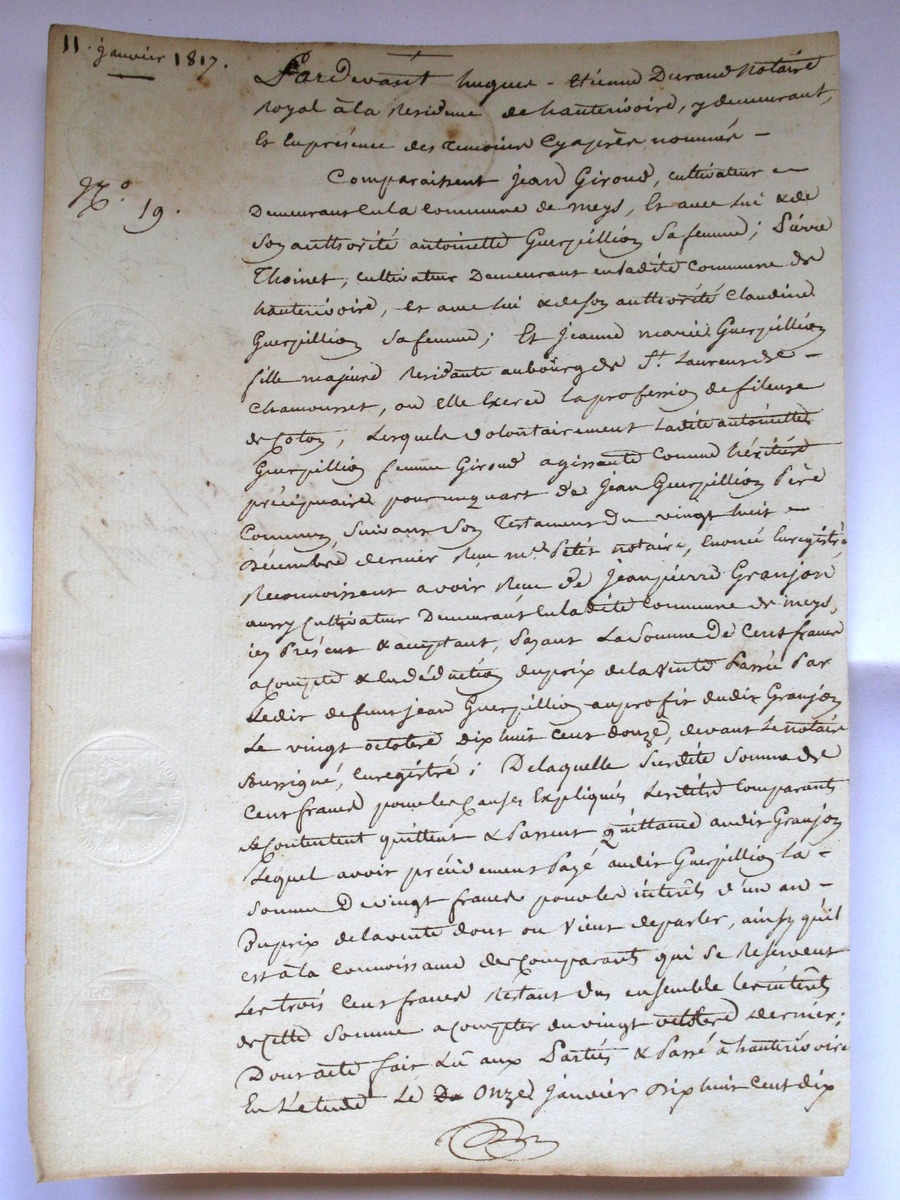 11. janvier 1817.
Pardevant hugues - Etienne Durand Notaire
Royal à la Residence de hauterivoire, y demeurant,
Et En présence des temoins Cyaprès nommés -
N.o 19.
Comparaissent jean Giroud, cultivateur
Demeurant En la Commune de meys, Et avec lui & de
Son authorité antoinette Guerpillion Sa femme; Pierre
Thoinet, cultivateur Demeurant en ladite Commune de
hauterivoire, Et avec lui & de son authorité Claudine
Guerpillion Sa femme; Et jeanne marie Guerpillion
fille majeure Residante au bourg de St. Laurens de -
Chamousset, ou elle Exerce la profession de fileuse
de Coton, Lesquels volontairement Ladite antoinette
Guerpillion femme Giroud agissante Comme héritière
précipuaire pour un quart de jean Guerpillion Père
Commun, Suivant Son Testament du vingt huit
Décembre dernier Reçu me. Petit notaire, Enoncé Enregistré,
Reconnoissent avoir Reçu de jean pierre Granjon
aussy Cultivateur Demeurant En ladite Commune de meys,
icy Présent & acceptant, Payant La Somme De Cent francs
acompte & En déduction du prix de la Vente Passée Par
Ledit defunt jean Guerpillion au profit dudit Granjon
Le vingt octobre Dix huit Cent douze, devant Le notaire
Soussigné, Enregistré; De laquelle Susdite Somme de
Cent francs pour les Causes Expliqués Lesdits Comparants
se Contentent quittent & Passent Quittance audit Granjon
Lequel avoir précédement Payé audit Guerpillion la -
Somme De vingt francs pour les intérêts d'un an -
Du prix de la vente dont on Vient de parler, ainsy qu'il
est à la Connoissance des Comparants qui Se Reservent
Les trois Cent francs Restant Dus ensemble Les intérêts
de Cette Somme acompter du vingt octobre dernier;
Dont acte fait Lû aux Parties & Passé à hauterivoire
En L'etude Le Onze janvier Dix huit Cent dix